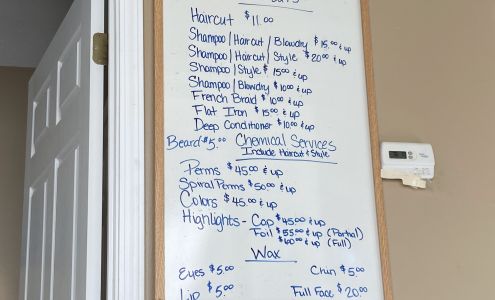 Haircut $11.00
Shampoo/Haircut/Blowdry $15.00 & up
Shampoo/Haircut/Style $20.00 & up
Shampoo/Style $15.00 & up
Shampoo/Blowdry $10.00 & up
French Braid $10.00 & up
Flat Iron $15.00 & up
Deep Conditioner $10.00 & up
Beard $5.00 Chemical Services
Include Haircut & Style
Perms $45.00 & up
Spiral Perms $50.00 & up
Colors $45.00 & up
Highlights - Cap $45.00 & up
Foil $55.00 & up (Partial)
$60.00 & up (Full)
Wax
Eyes $5.00 Chin $5.00
Lip $5.00 Full Face $20.00